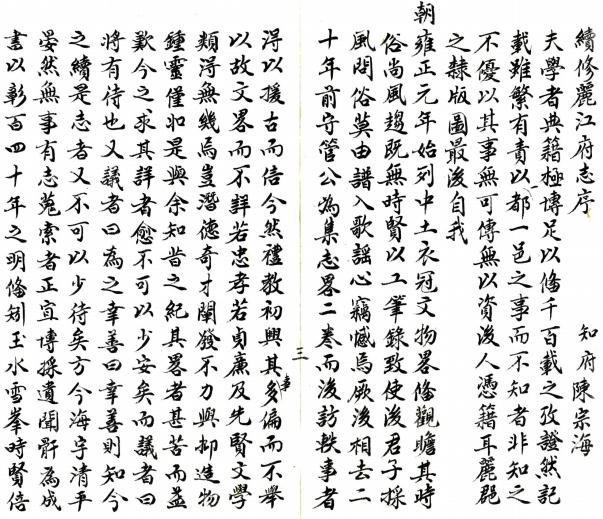 續修麗江府志序
知府陳宗海
夫學者典籍極博足以備千百載之攷證然記
載雖繁有責以一都一邑之事而不知者非知之
不優以其事無可傳無以資後人憑藉耳麗郡
之隸版圖最後自我
朝雍正元年始列中土衣冠文物畧備觀瞻其時
俗尚風趨既無時賢以工筆錄致使後君子採
風問俗莫由譜入歌謠心竊憾焉厥後相去二
十年前守管公為集志畧二卷而後訪軼事者
三
得以援古而信今然禮教初興其事多偏而不舉
以故文畧而不詳若忠孝若貞廉及先賢文學
類得無幾焉豈潛德奇才闡發不力與抑造物
鍾靈僅如是與余知昔之紀其畧者甚苦而益
歎今之求其詳者愈不可以少安矣而議者曰
將有待也又議者曰為之幸善曰幸善則知今
之續是志者又不可以少待矣方今海宇清平
晏然無事有志蒐索者正宜博採遺聞辭為成
書以彰百四十年之明備矧玉水雪峯時賢倍